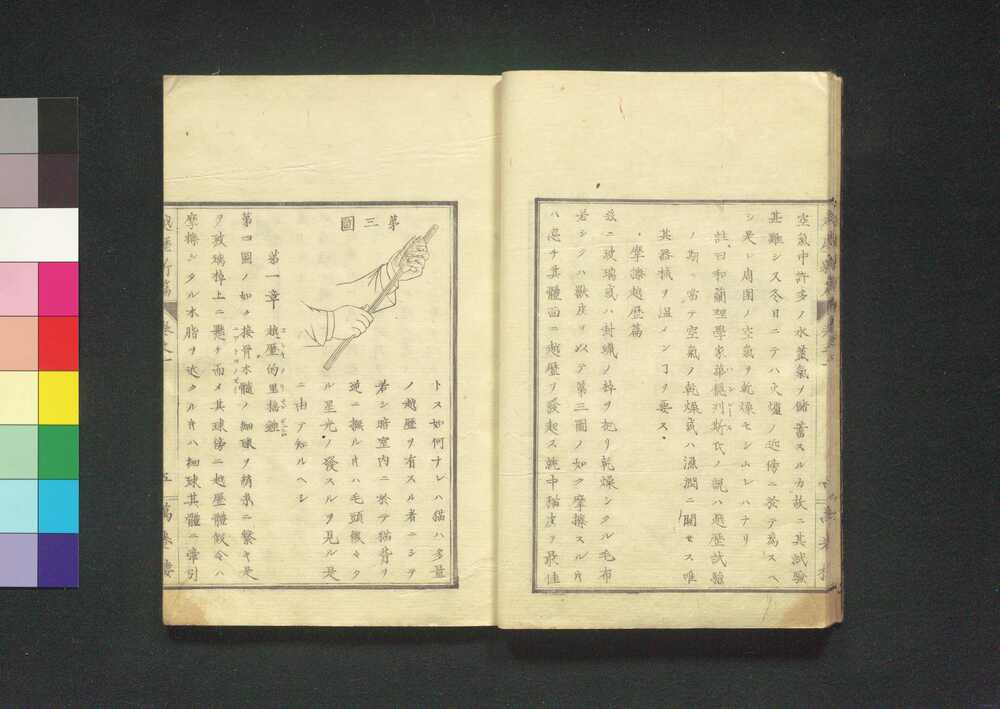 空氣中許多ノ水蒸氣ヲ儲蓄スルカ故ニ其試驗
甚難シス冬日ニテハ火爐ノ近傍ニ於テ爲スヘ
シ是レ周圍ノ空氣ヲ乾燥セシムレハナリ
註ニ曰和蘭理學家 刋斯氏ノ説ハ越歴試驗
ノ期ハ嘗テ空氣ノ乾燥或ハ濕潤ニ關セス唯
其器械ヲ温メンヿヲ要ス
摩擦越歴篇
玆ニ玻璃或ハ封蠟ノ棒ヲ把リ乾燥シタル毛布
若シクハ獸皮ヲ以テ第三圖ノ如ク摩擦スル片
ハ忽チ其體面ニ越歴ヲ發起ス就中猫皮ヲ最佳
第三圖
トス如何ナレハ猫ハ多量
ノ越歴ヲ有スル者ニシテ
若シ暗室内ニ於テ猫背ヲ
逆ニ撫ル片ハ毛頭微々タ
ル星光ノ發スルヲ見ル是
ニ由テ知ルヘシ
第一章
越歴的里失篤
第四圖ノ如ク接骨木髓ノ細球ヲ精糸ニ繋キ是
ヲ玻璃棹上ニ懸ケ而メ其球傍ニ越歴體假令ハ
摩擦シタル木脂ヲ近クル片ハ細球其體ニ牽引
五